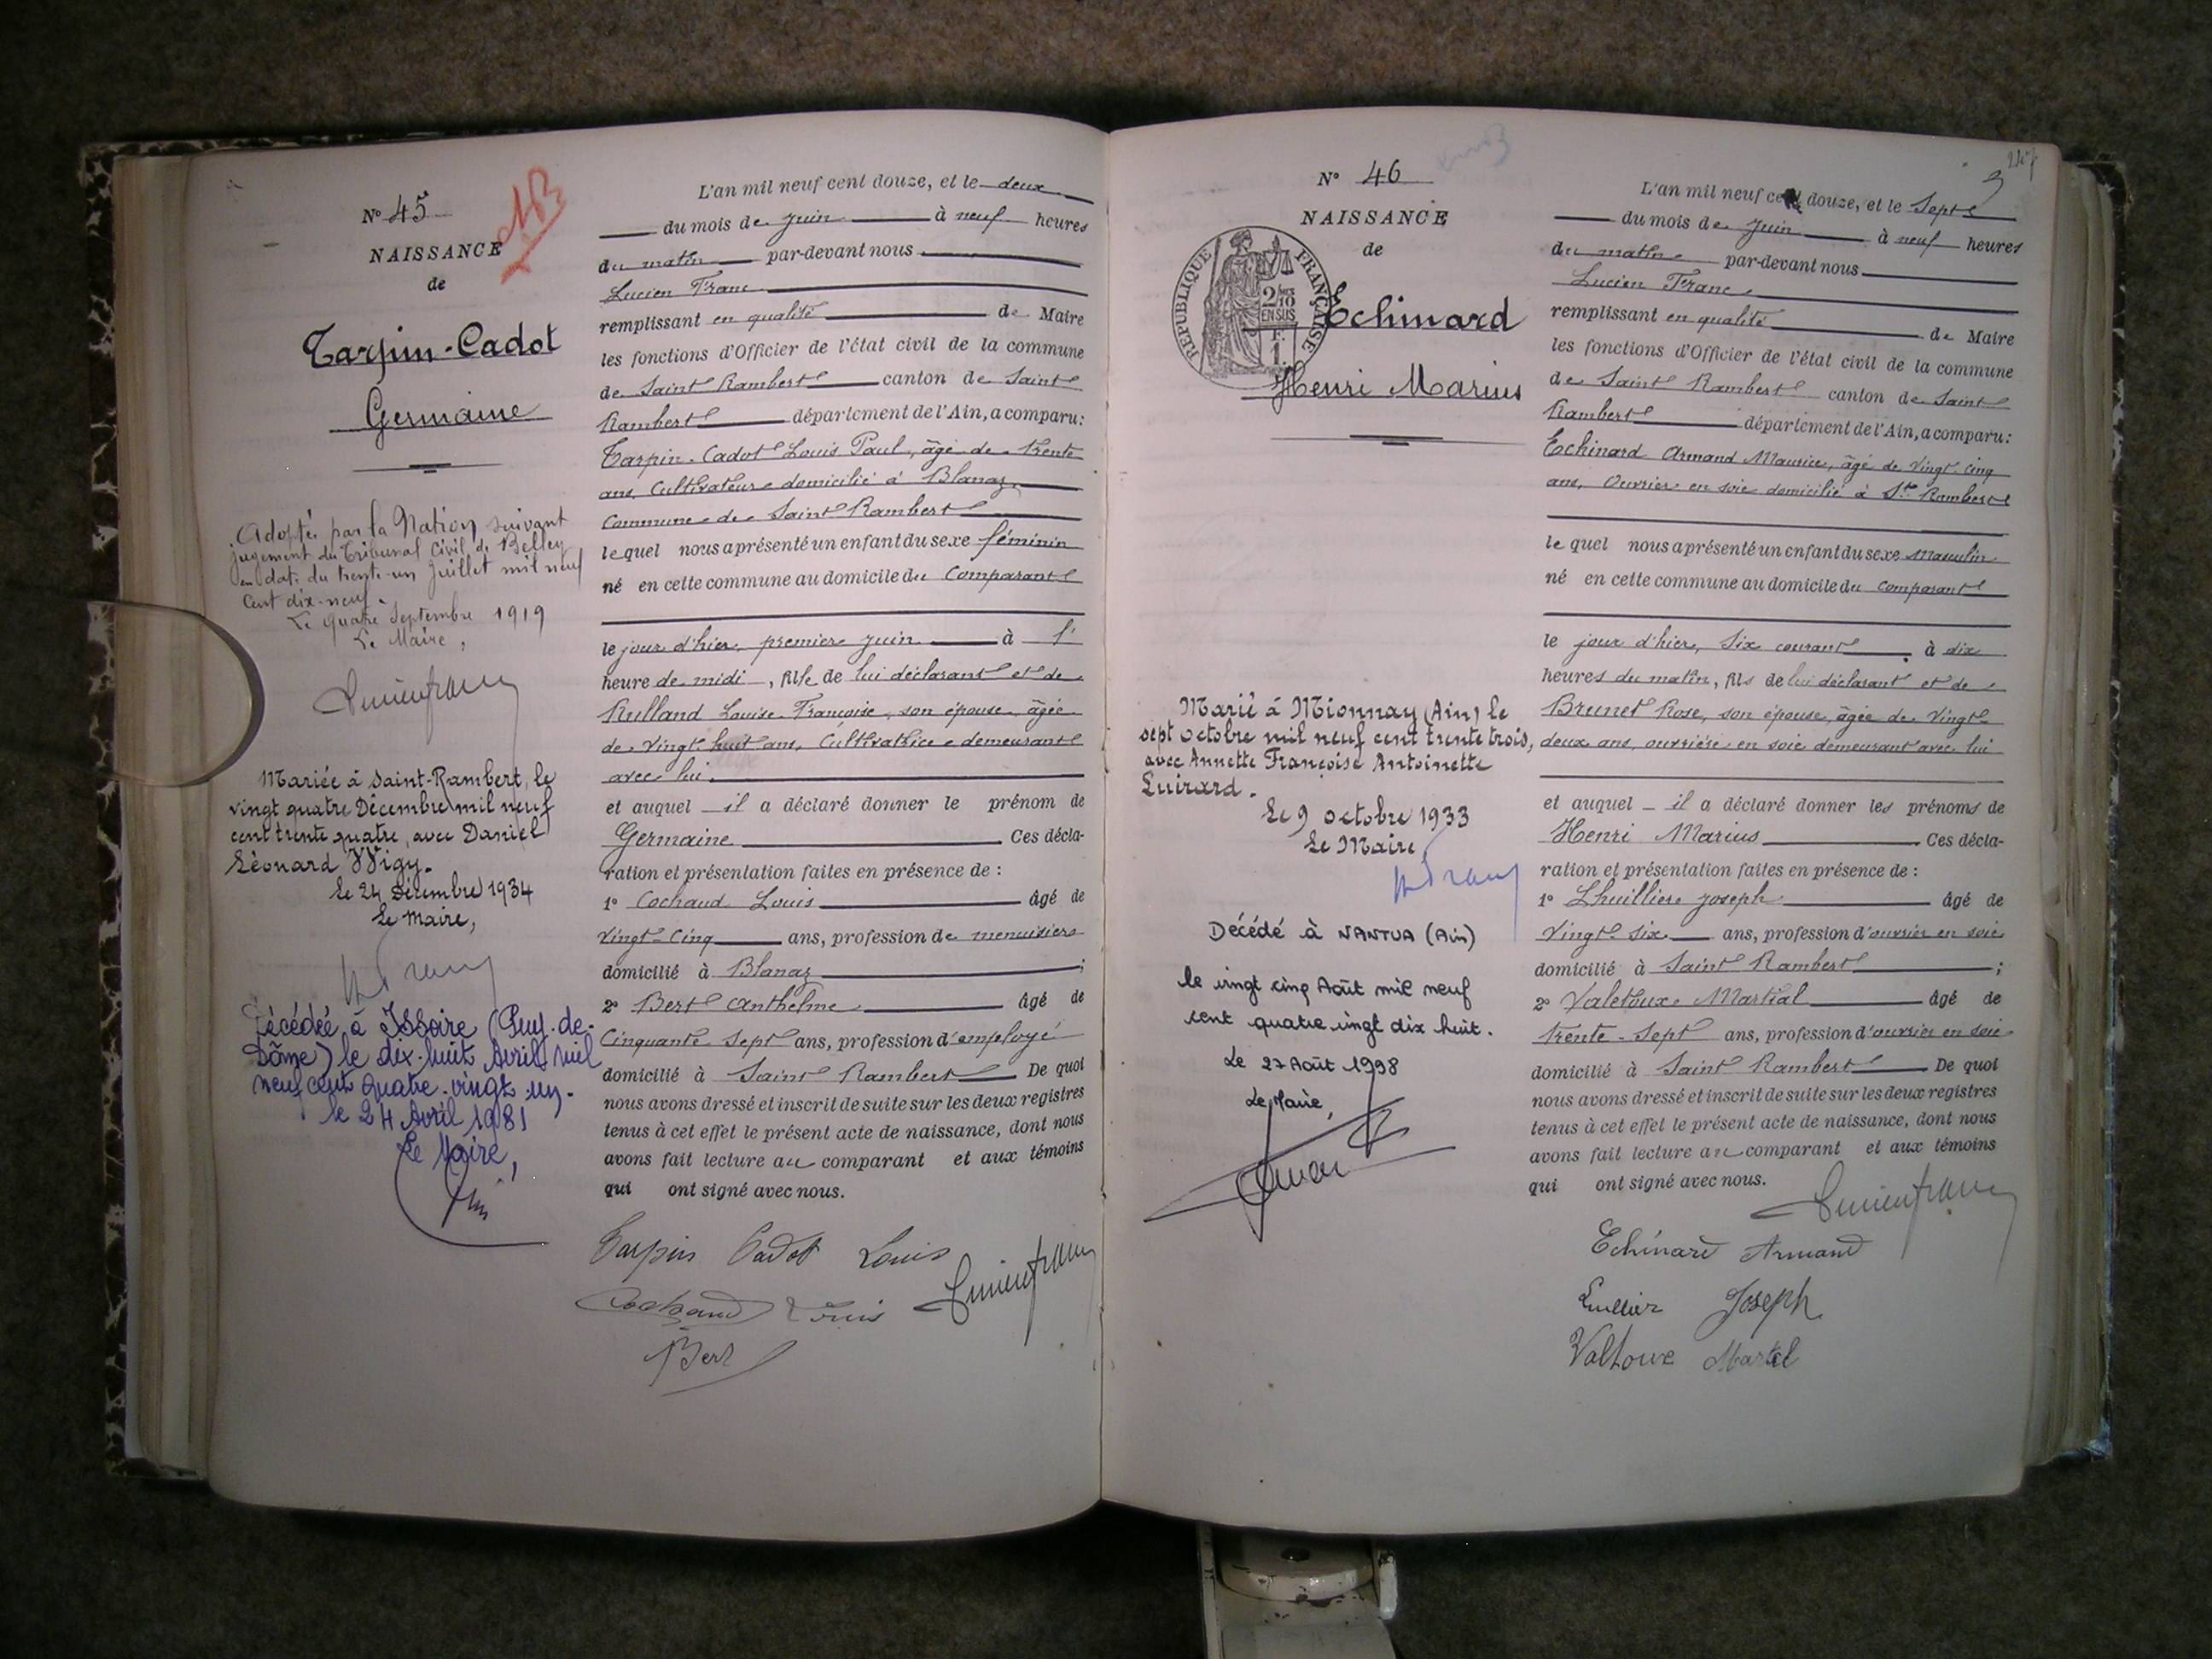 N° 45
NAISSANCE
de
Tarpin-Cadot
Germaine
Adoptée par la Nation suivant
jugement du Tribunal Civil de Belley
en date du trente-un Juillet mil neuf
cent dix-neuf.
Le quatre Septembre 1919
Le Maire,
Lucien franc
Mariée à Saint-Rambert, le
vingt quatre Décembre mil neuf
cent trente quatre, avec Daniel
Léonard Vigy.
le 24 Décembre 1934
Le Maire,
Décédée à Issoire (Puy-de-
Dôme) le dix-huit Avril mil
neuf cent quatre-vingt-un.
le 24 Avril 1981
Le Maire,
L'an mil neuf cent douze, et le deux
du mois de juin à neuf heures
du matin par-devant nous
Lucien Franc
remplissant en qualité de Maire
les fonctions d'Officier de l'état civil de la commune
de Saint Rambert canton de Saint
Rambert département de l'Ain, a comparu:
Tarpin-Cadot Louis Paul, âgé de trente
ans, Cultivateur domicilié à Blanaz,
Commune de Saint Rambert
lequel nous a présenté un enfant du sexe féminin
né en cette commune au domicile du Comparant
le jour d'hier, premier juin à 1'
heure de midi, fille de lui déclarant et de
Rulland Louise Françoise, son épouse, âgée
de vingt huit ans, Cultivatrice demeurant
avec lui.
et auquel il a déclaré donner le prénom de
Germaine Ces décla-
ration et présentation faites en présence de :
1° Cochaud Louis âgé de
vingt-cinq ans, profession de menuisier
domicilié à Blanaz ;
2° Bert Anthelme âgé de
Cinquante sept ans, profession d'employé
domicilié à Saint Rambert De quoi
nous avons dressé et inscrit de suite sur les deux registres
tenus à cet effet le présent acte de naissance, dont nous
avons fait lecture au comparant et aux témoins
qui ont signé avec nous.
Tarpin Cadot Louis
Cochaud Louis Lucien franc
Bert
N° 46
NAISSANCE
de
RÉPUBLIQUE FRANÇAISE
2/10
EN SUS
F.
1.
Echinard
Henri Marius
Marié à Mionnay (Ain) le
sept octobre mil neuf cent trente trois,
avec Annette Françoise Antoinette
Guirard.
Le 9 octobre 1933
Le Maire
Décédé à NANTUA (Ain)
le vingt cinq Août mil neuf
cent quatre vingt dix huit.
Le 27 Août 1998
Le Maire,
L'an mil neuf cent douze, et le Sept
du mois de juin à neuf heures
du matin par-devant nous
Lucien Franc
remplissant en qualité de Maire
les fonctions d'Officier de l'état civil de la commune
de Saint Rambert canton de Saint
Rambert département de l'Ain, a comparu:
Echinard Armand Maurice, âgé de vingt cinq
ans, Ouvrier en soie domicilié à St Rambert
lequel nous a présenté un enfant du sexe masculin
né en cette commune au domicile du comparant
le jour d'hier, Six courant à dix
heures du matin, fils de lui déclarant et de
Brunet Rose, son épouse, âgée de vingt-
deux ans, ouvrière en soie demeurant avec lui
et auquel il a déclaré donner les prénoms de
Henri Marius Ces décla-
ration et présentation faites en présence de :
1° Lhuillier Joseph âgé de
vingt-six ans, profession d'ouvrier en soie
domicilié à Saint Rambert ;
2° Valetoux Martial âgé de
trente-sept ans, profession d'ouvrier en soie
domicilié à Saint Rambert De quoi
nous avons dressé et inscrit de suite sur les deux registres
tenus à cet effet le présent acte de naissance, dont nous
avons fait lecture au comparant et aux témoins
qui ont signé avec nous.
Lucien franc
Echinard Armand
Luillier Joseph
Valtoux Martel